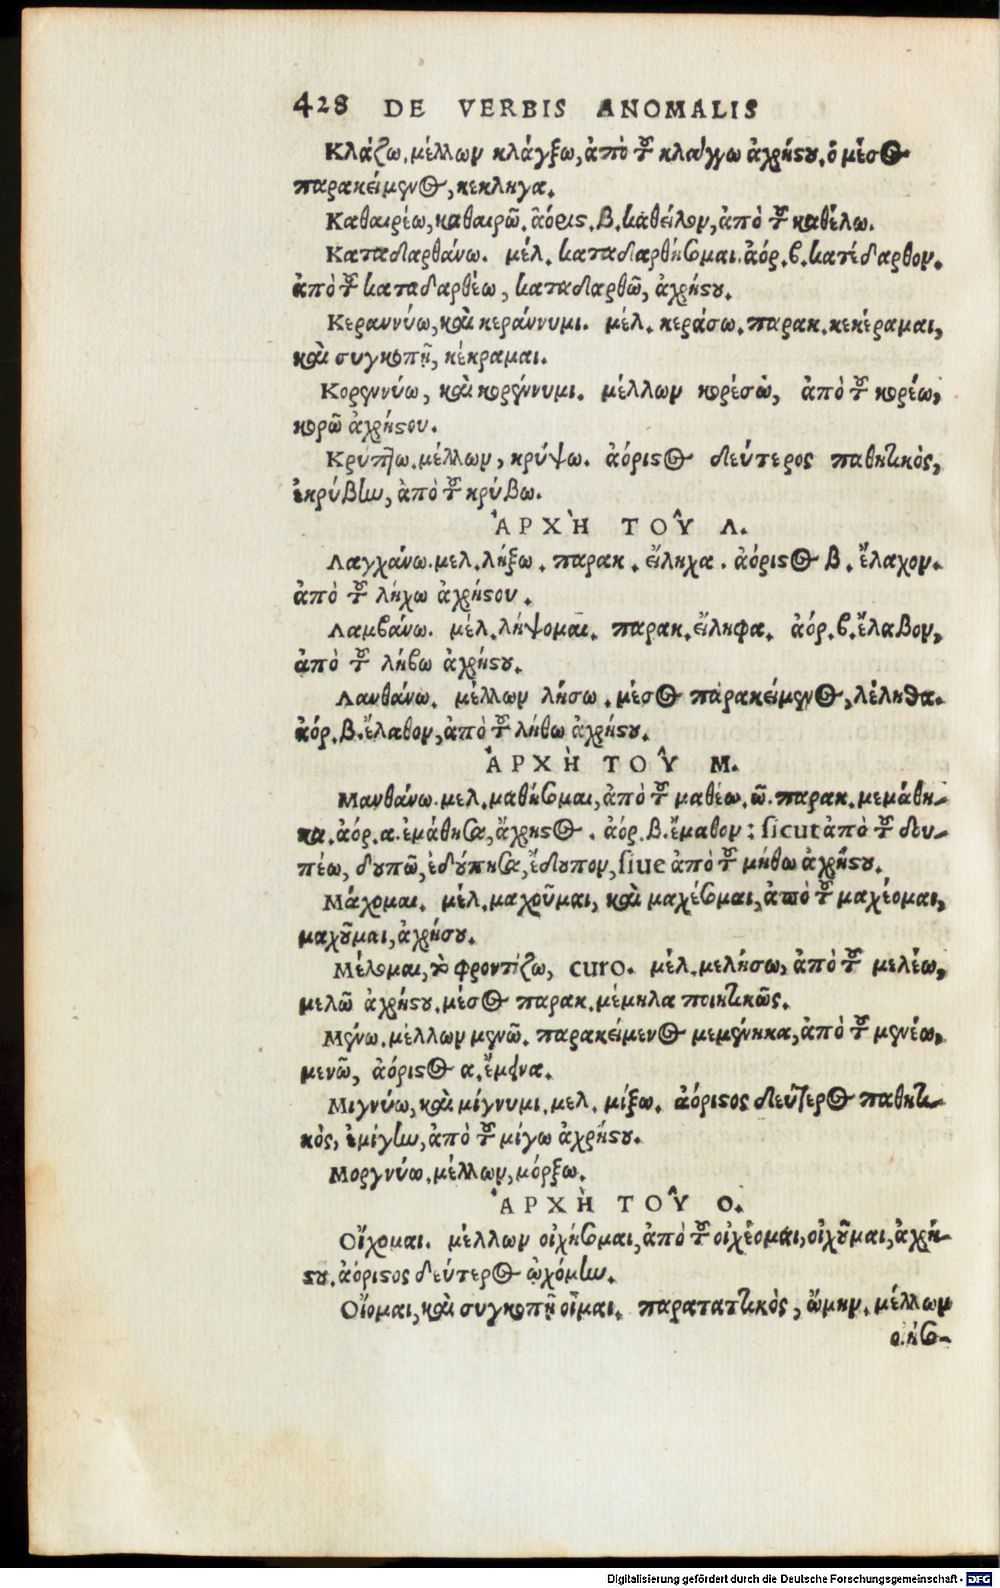 428 DE VERBIS ANOMALIS
Κλάζω. μέλλων κλάγξω, ἀπὸ τοῦ κλάγγω ἀχρήστου. ὁ μέσος
παρακείμενος, κεκληγα.
Καθαιρέω, καθαιρῶ. ἀόρις. β. καθεῖλον, ἀπὸ τοῦ καθέλω.
Καταδαρθάνω. μέλ. καταδαρθήσομαι. ἀόρ. β. κατέδαρθον.
ἀπὸ τοῦ καταδαρθέω, καταδαρθῶ, ἀχρήστου.
Κεραννύω, καὶ κεράννυμι. μέλ. κεράσω. παρακ. κεκέραμαι,
καὶ συγκοπῇ, κέκραμαι.
Κορεννύω, καὶ κορέννυμι. μέλλων κορέσω, ἀπὸ τοῦ κορέω,
κορῶ ἀχρήστου.
Κρύπτω. μέλλων, κρύψω. ἀόριστος δεύτερος παθητικὸς,
ἐκρύβην, ἀπὸ τοῦ κρύβω.
ἈΡΧῊ ΤΟΥ͂ Λ.
Λαγχάνω. μελ. λήξω. παρακ. εἴληχα. ἀόριστος β. ἔλαχον.
ἀπὸ τοῦ λήχω ἀχρήστου.
Λαμβάνω. μέλ. λήψομαι. παρακ. εἴληφα. ἀόρ. β. ἔλαβον,
ἀπὸ τοῦ λήβω ἀχρήστου.
Λανθάνω. μέλλων λήσω. μέσος παρακείμενος, λέληθα.
ἀόρ. β. ἔλαθον, ἀπὸ τοῦ λήθω ἀχρήστου.
ἈΡΧῊ ΤΟΥ͂ Μ.
Μανθάνω. μελ. μαθήσομαι, ἀπὸ τοῦ μαθέω, ῶ. παρακ. μεμάθη-
κα. ἀόρ. α. ἐμάθησα, ἄχρηστος. ἀόρ. β. ἔμαθον: sicut ἀπὸ τοῦ δου-
πέω, δουπῶ, ἐδούπησα, ἔδουπον, siue ἀπὸ τοῦ μήθω ἀχρήστου.
Μάχομαι. μέλ. μαχοῦμαι, καὶ μαχέσομαι, ἀπὸ τοῦ μαχέομαι,
μαχοῦμαι, ἀχρήστου.
Μέλομαι, τὸ φροντίζω, curo. μέλ. μελήσω, ἀπὸ τοῦ μελέω,
μελῶ ἀχρήστου. μέσος παρακ. μέμηλα ποιητικῶς.
Μένω. μέλλων μενῶ. παρακείμενος μεμένηκα, ἀπὸ τοῦ μενέω,
μενῶ, ἀόριστος α. ἔμεινα.
Μιγνύω, καὶ μίγνυμι. μελ. μίξω. ἀόριστος δεύτερος παθητι-
κὸς, ἐμίγην, ἀπὸ τοῦ μίγω ἀχρήστου.
Μοργνύω. μέλλων, μόρξω.
ἈΡΧῊ ΤΟΥ͂ Ο.
Οἴχομαι. μέλλων οἰχήσομαι, ἀπὸ τοῦ οἰχέομαι, οἰχοῦμαι, ἀχρή-
στου. ἀόριστος δεύτερος ᾠχόμην.
Οἴομαι, καὶ συγκοπῇ οἶμαι. παρατατικὸς, ᾤμην. μέλλων
οἰήσο-
Digitalisierung gefördert durch die Deutsche Forschungsgemeinschaft - DFG